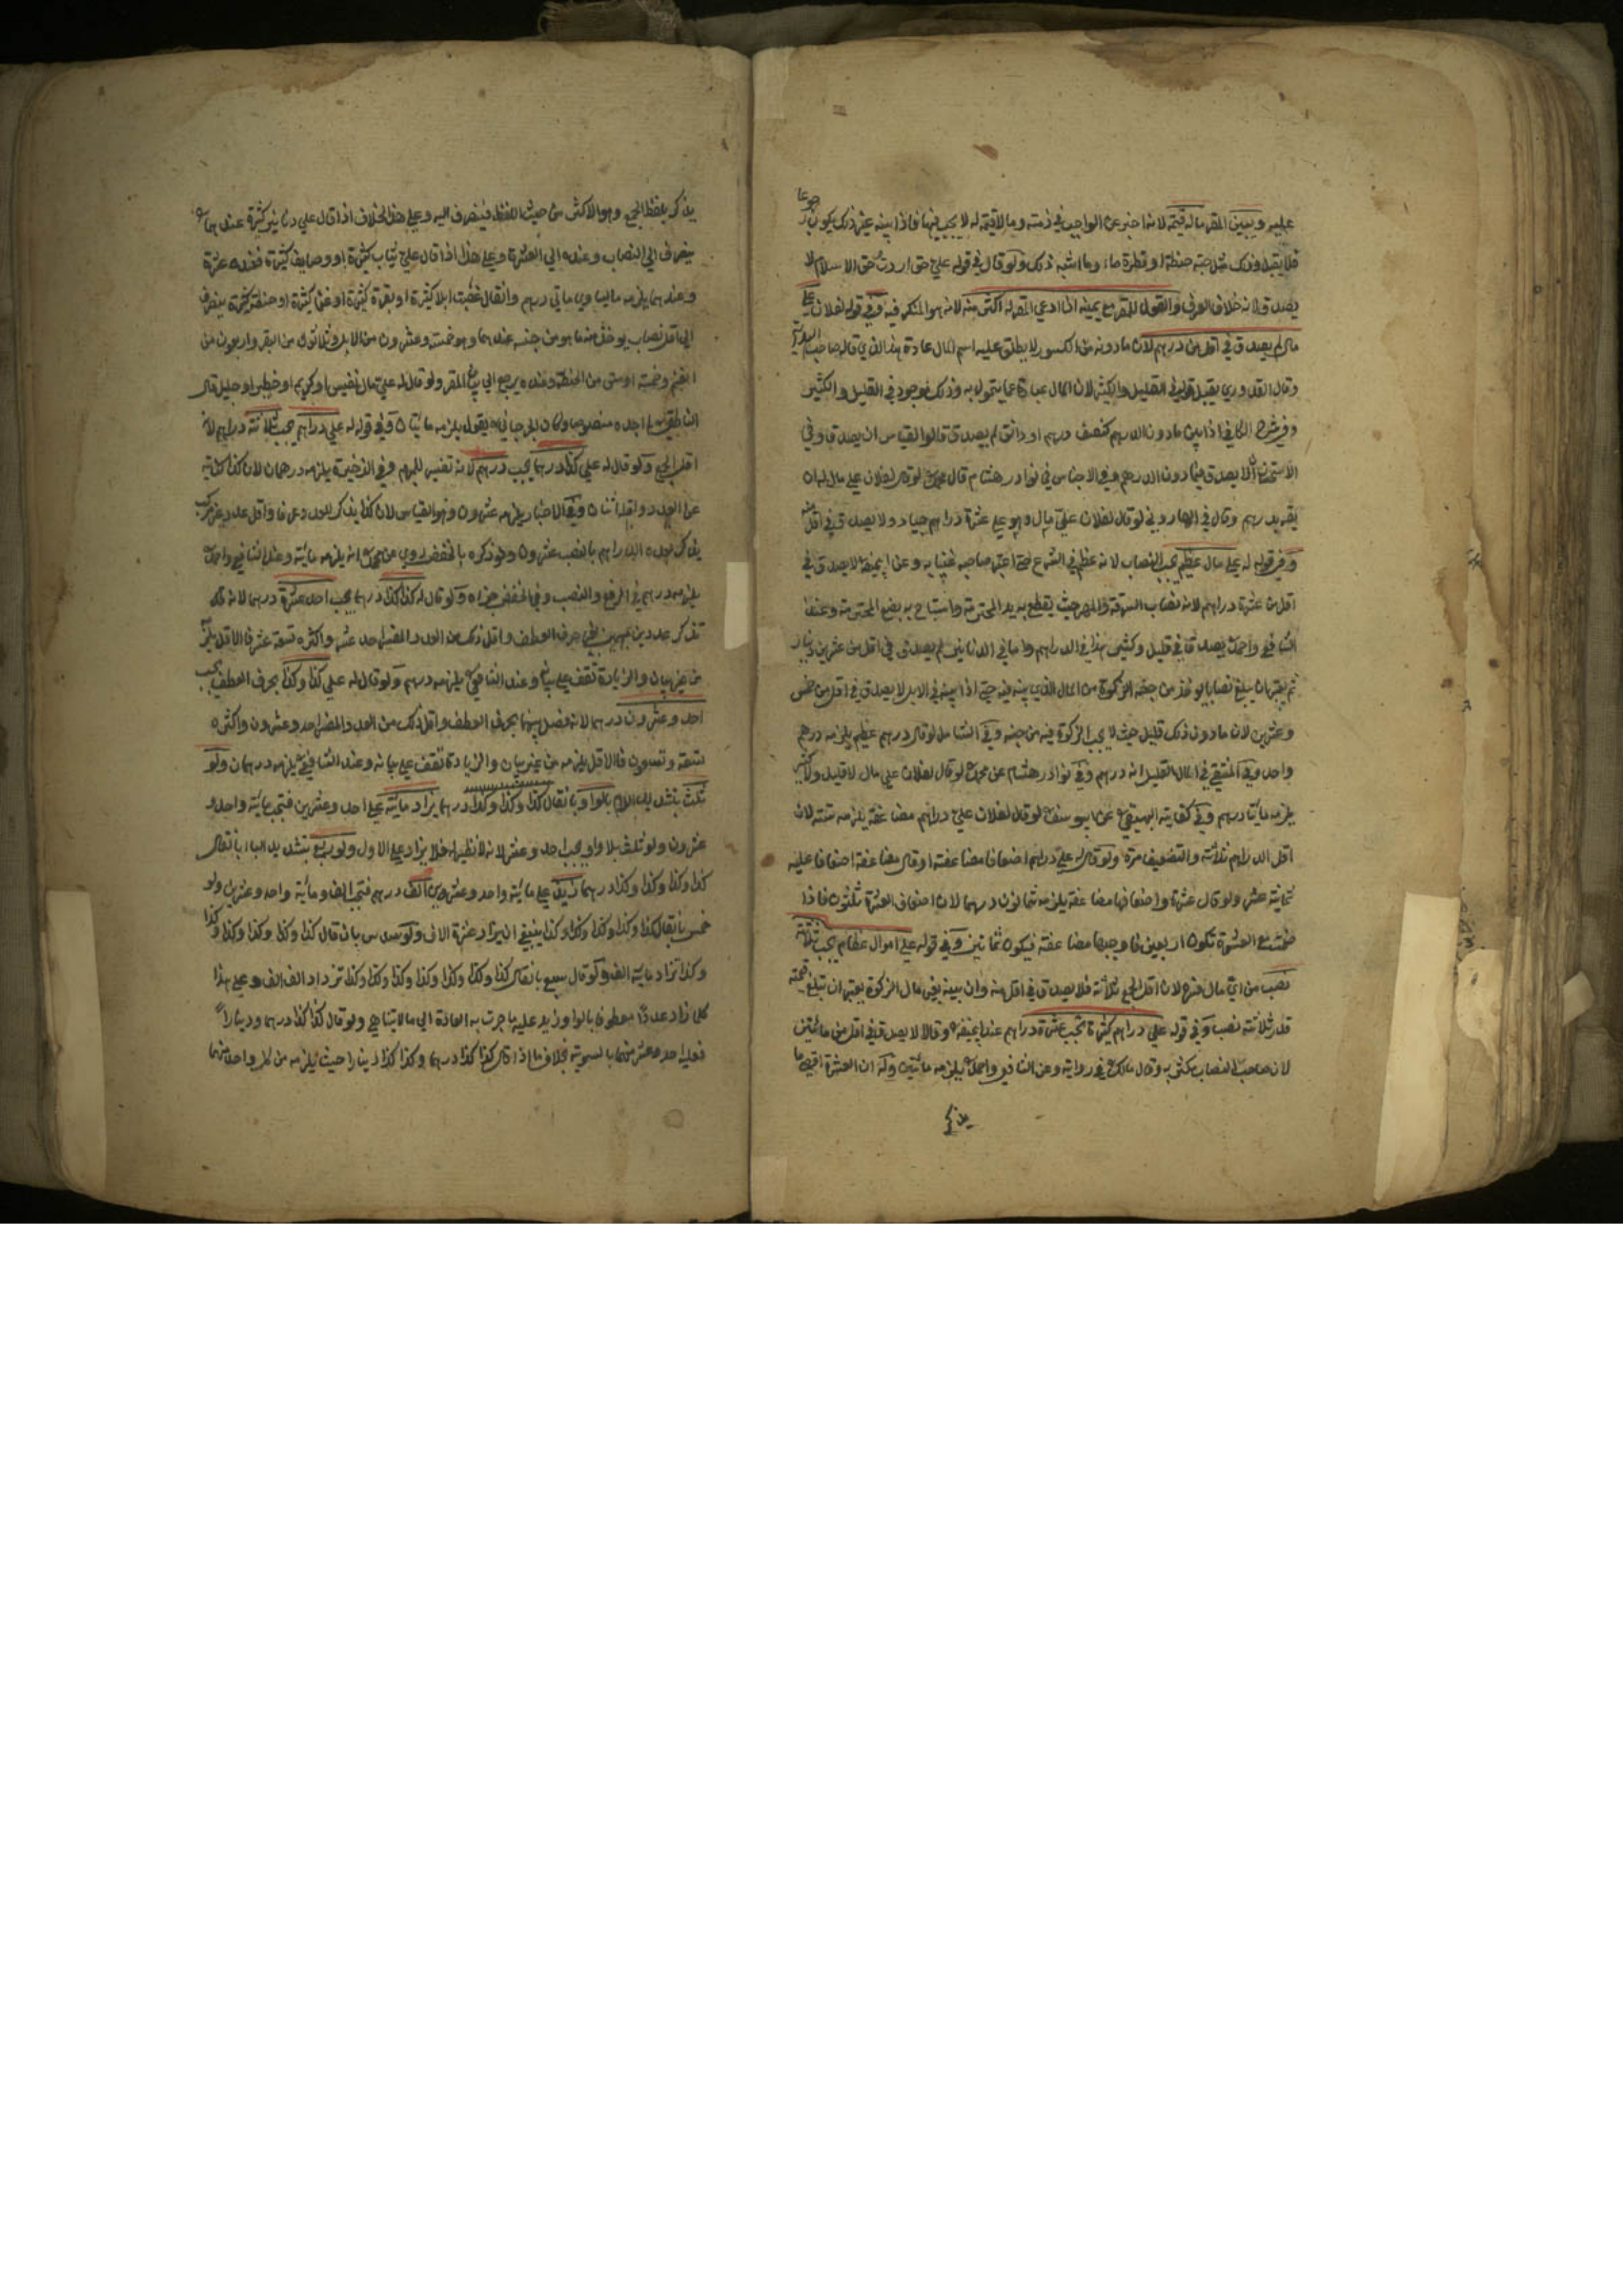 عليه ويبين المقر ماله قيمة لانه اخبر عن الواجب في ذمته وما لا قيمة له لا يجب فيها فاذا بينه بغير ذلك يكون رجوعا
فلا يقبل وذلك مثل حبة حنطة او قطرة ماء وما اشبه ذلك ولو قال في قوله علي حق اردت حق الاسلام لا
يصدق لانه خلاف العرف والقول للمقر مع يمينه اذا ادعى المقر له اكثر منه لانه هو المنكر فيه وفي قوله لفلان علي
مال لم يصدق في اقل من درهم لان ما دونه من الكسور لا يطلق عليه اسم المال عادة هذا الذي قاله صاحب الهداية
وقال القدوري يقبل قوله في القليل والكثير لان المال عبارة عما يتمول به وذلك موجود في القليل والكثير
وفي شرح الكافي اذا بين ما دون الدرهم كنصف درهم او دانق لم يصدق قالوا القياس ان يصدق وفي
الاستحسان لا يصدق فيما دون الدرهم وفي الاجناس في نوادر هشام قال محمد لو قال لفلان علي مال له ان
يقر بدرهم وقال في الهاروني لو قال لفلان علي مال وهو علي عشرة دراهم جياد ولا يصدق في اقل منه
وفي قوله له علي مال عظيم يجب النصاب لانه عظيم في الشرع حتى اعتبر صاحبه غنيا به وعن ابي حنيفة لا يصدق في
اقل من عشرة دراهم لانه نصاب السرقة والمهر حيث يقطع به يد المحترمة واستباح به بضع المحترمة وعند
الشافعي واحمد يصدق في قليل وكثير هذا في الدراهم واما في الدنانير لم يصدق في اقل من عشرين دينار
ثم يعتبر ان يبلغ نصابا يؤخذ من جنسه الزكوة من المال الذي بينه فيه حتى اذا بينه في الابل لا يصدق في اقل من خمس
وعشرين لان ما دون ذلك قليل حيث لا يجب الزكوة فيه من جنسه وفي الشامل لو قال درهم عظيم يلزمه درهم
واحد وفي المنتقى في المال القليل انه درهم وفي نوادر هشام عن محمد لو قال لفلان علي مال لا قليل ولا كثير
يلزمه مايتا درهم وفي كفاية البيهقي عن ابي يوسف لو قال لفلان علي دراهم مضاعفة يلزمه ستة لان
اقل الدراهم ثلاثة والتضعيف مرة ولو قال له علي دراهم اضعافا مضاعفة او قال مضاعفة اضعافا عليه
ثمانية عشر ولو قال عشرة واضعافها مضاعفة يلزمه ثمانون درهما لان اضعاف العشرة ثلثون فاذا
ضمت مع العشرة تكون اربعين فاوجبها مضاعفة فيكون ثمانين وفي قوله علي اموال عظام يجب ثلاثة
نصب من اي مال فسره لان اقل الجمع ثلاثة فلا يصدق في اقل منه وان بينه بغير مال الزكوة يعتبر ان تبلغ قيمته
قدر ثلاثة نصب وفي قوله علي دراهم كثيرة تجب عشرة دراهم عند ابي حنيفة وقالا لا يصدق في اقل من مائتين
لان صاحب النصاب مكثر به وقال مالك في رواية وعن الشافعي واحمد يلزمه مائتين وله ان العشرة اقصى ما
يذكر
يذكر بلفظ الجمع وهو الاكثر من حيث اللفظ فينصرف اليه وعلى هذا الخلاف اذا قال علي دنانير كثيرة عندهما
ينصرف الي النصاب وعنده الي العشرة وعلى هذا اذا قال علي ثياب كثيرة او وصايف كثيرة فعنده عشرة
وعندهما يلزمه ما يساوي مايتي درهم وان قال غصبت ابلا كثيرة او بقرة كثيرة او غنما كثيرة او حنطة كثيرة ينصرف
الي اقل نصاب يؤخذ منه ما هو من جنسه عندهما وهو خمسة وعشرون من الابل وثلاثون من البقر واربعون من
الغنم وخمسة اوسق من الحنطة وعنده يرجع الي بيان المقر ولو قال له علي مال نفيس او كريم او خطير او جليل قال
الناطفي لم اجده منصوصا وكان الجرجاني يقول يلزمه مايتان وفي قوله له علي دراهم يجب ثلاثة دراهم لانه
اقل الجمع ولو قال له علي كذا درهما يجب درهم لانه تفسير للمبهم وفي الذخيرة يلزمه درهمان لان كذا كناية
عن العدد واقله اثنان وفي الاختيار يلزمه عشرون وهو القياس لان كذا يذكر للعدد عرفا واقل عدد غير مركب
يذكر بعده الدراهم بالنصب عشرون ولو ذكره بالخفض روي عن محمد انه يلزمه مائة وعند الشافعي واحمد
يلزمه درهم في الرفع والنصب وفي الخفض جزءه ولو قال له كذا كذا درهما يجب احد عشرة درهما لانه
تذكر عددين مبهمين بغير حرف العطف واقل ذلك من العدد المفسر احد عشر واكثره تسعة عشر فالاقل يلزمه
من غير بيان والزيادة تقف على بيانه وعند الشافعي يلزمه درهم ولو قال له علي كذا وكذا بحرف العطف يجب
احد وعشرون درهما لانه فصل بينهما بحرف العطف واقل ذلك من العدد المفسر احد وعشرون واكثره
تسعة وتسعون فالاقل يلزمه من غير بيان والزيادة تقف على بيانه وعند الشافعي يلزمه درهمان ولو
ثلث بتشديد اللام بالواو بان قال كذا وكذا وكذا درهما يزاد مائة على احد وعشرين فتجب مائة واحد و
عشرون ولو ثلث بلا واو يجب احد وعشر لانه لا نظير له فلا يزاد على الاول ولو ربع بتشديد الباء بان قال
كذا وكذا وكذا وكذا درهما يزاد على مائة واحد وعشرين الف درهم فتجب الف ومائة واحد وعشرين ولو
خمس بان قال كذا وكذا وكذا وكذا وكذا ينبغي ان يزاد عشرة الاف ولو سدس بان قال كذا وكذا وكذا وكذا وكذا
وكذا تزاد مائة الف ولو قال سبع بان قال كذا وكذا وكذا وكذا وكذا وكذا وكذا تزداد الف الف وعلى هذا
كلما زاد عددا معطوفا بالواو زيد عليه ما جرت به العادة الي ما لا يتناهي ولو قال كذا كذا درهما ودينارا
فعليه احد عشر منهما بالسوية بخلاف ما اذا قال كذا كذا درهما وكذا كذا دينارا حيث يلزمه من كل واحد منهما